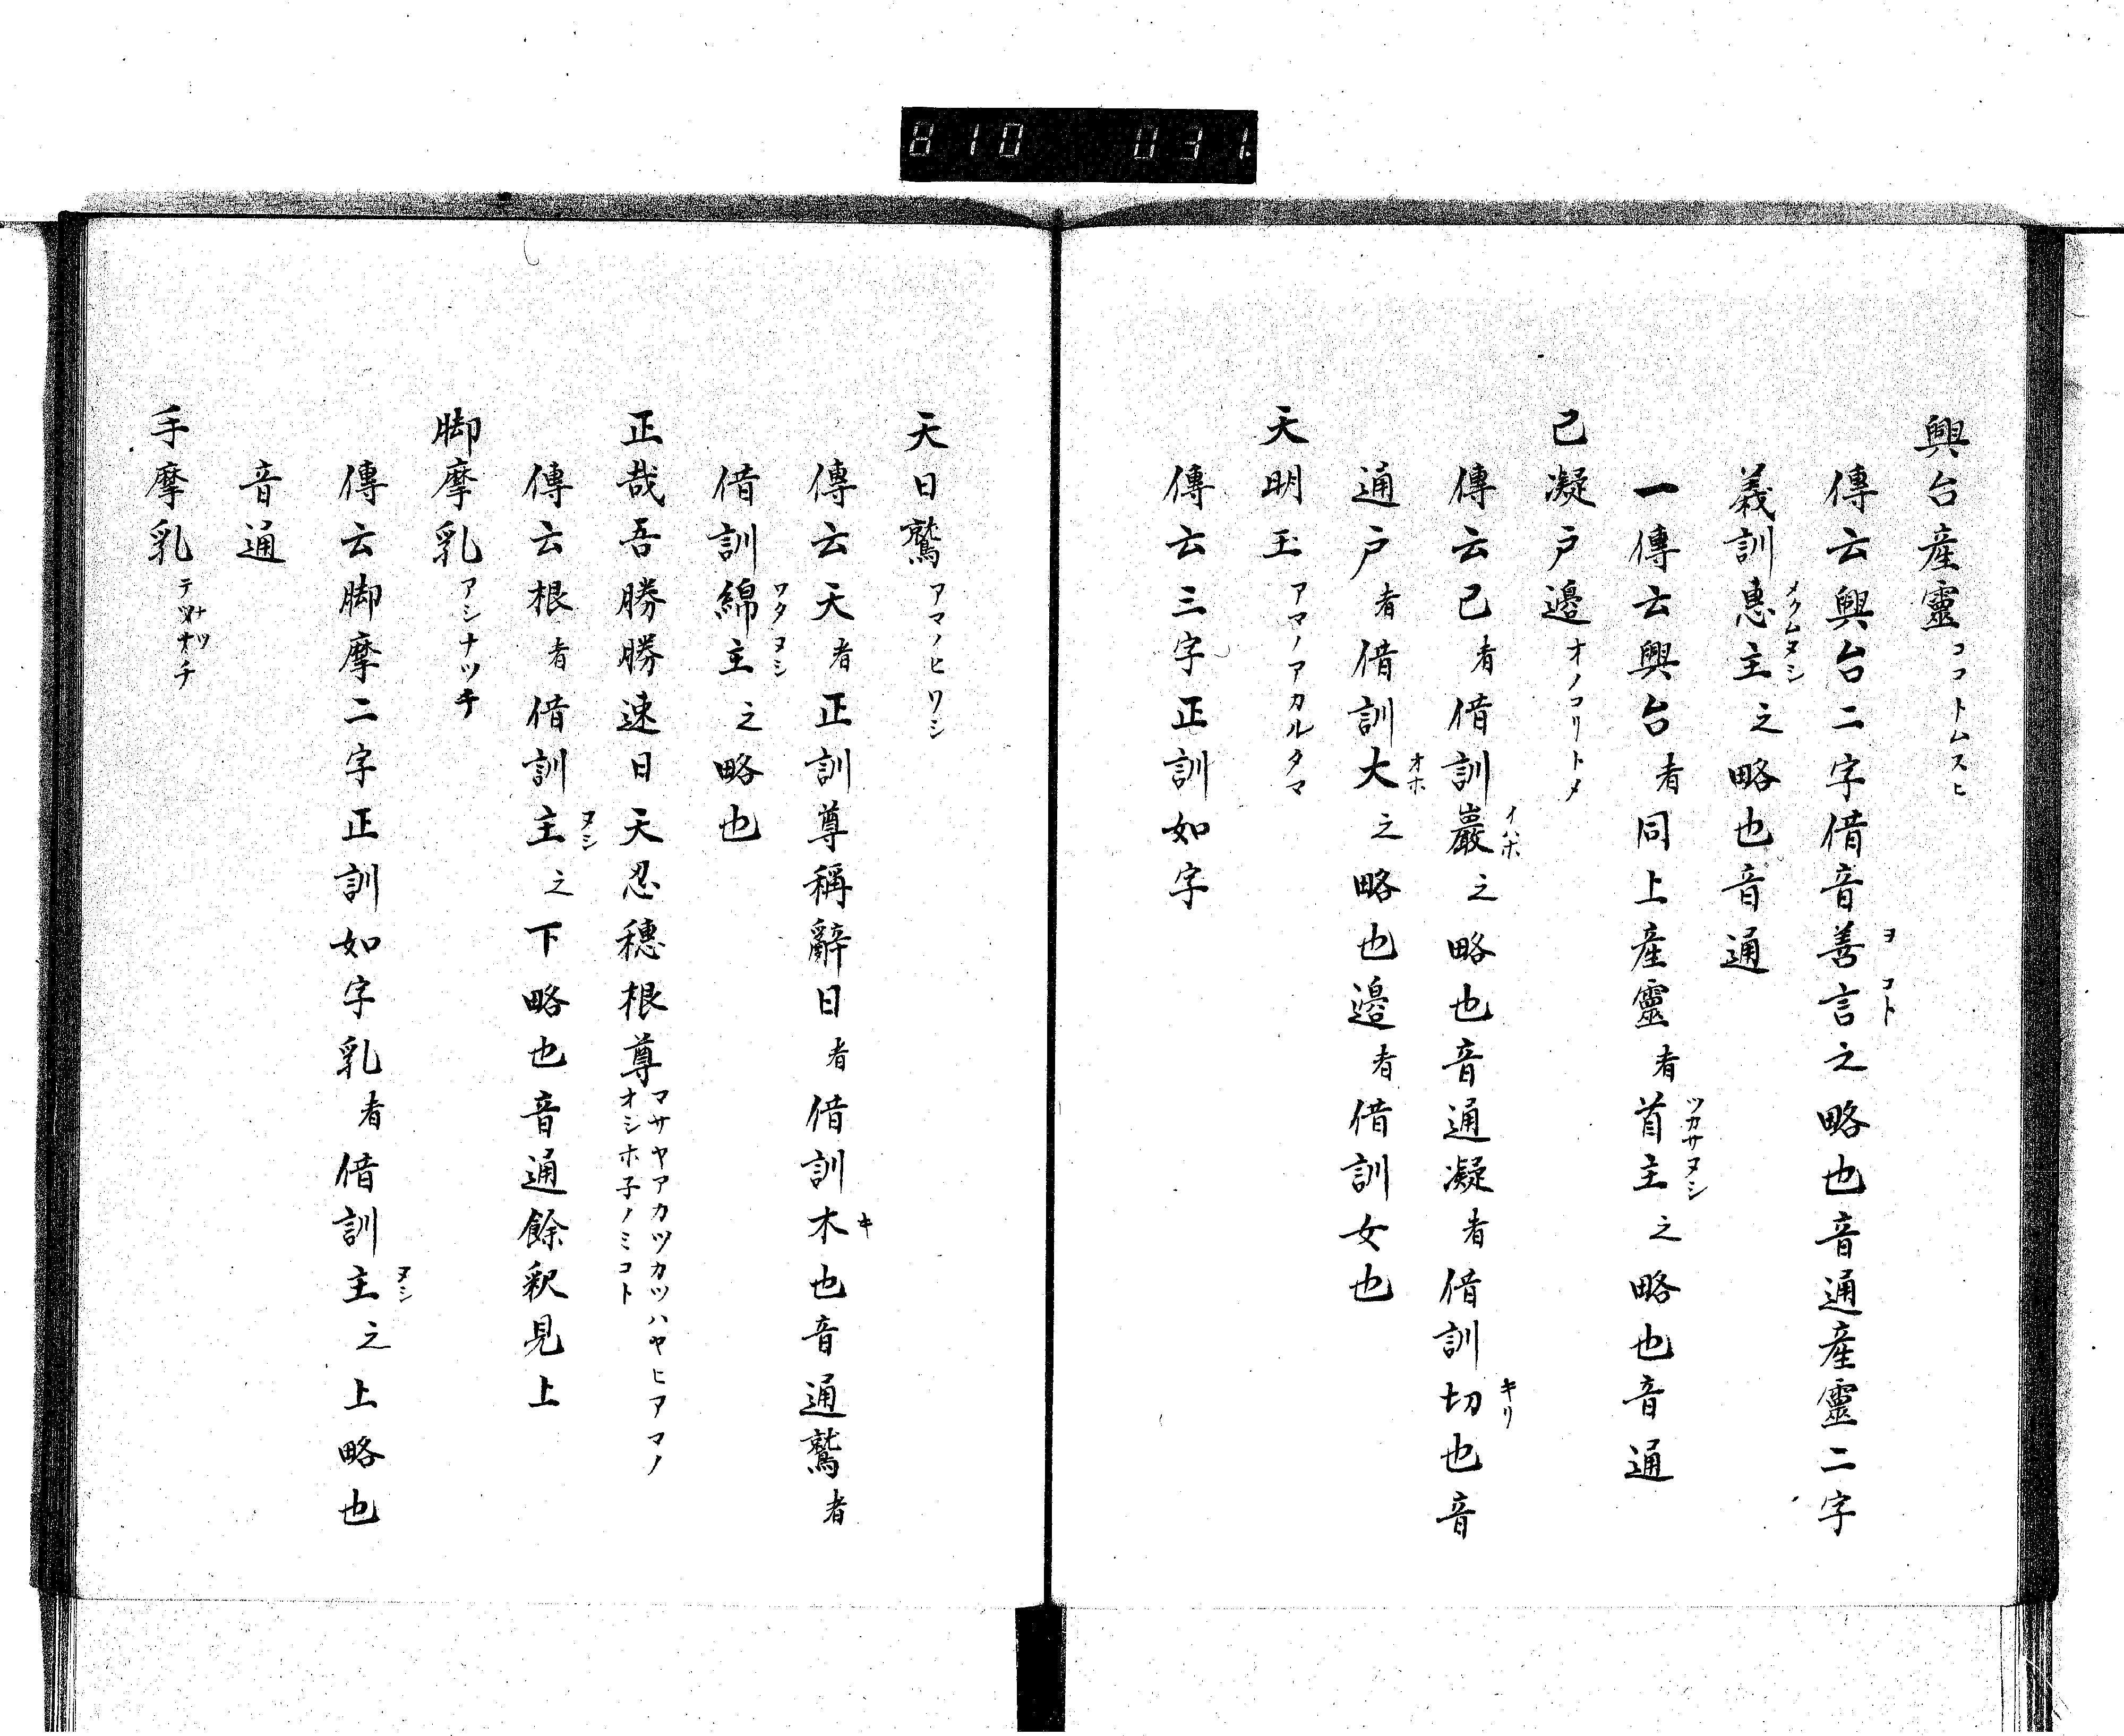 810 031
興台産靈ココトムスヒ
傳云興台二字借音善言之略也音通産靈二字
ヨコト
義訓惠主之略也音通
メクムヌシ
一傳云興台者同上産靈者首主之略也音通
ツカサヌシ
己凝戸邊オノコリトメ
傳云己者借訓巖之略也音通凝者借訓切也音
イハホ キリ
通戸者借訓大之略也邊者借訓女也
オホ
天明玉アマノアカルタマ
傳云三字正訓如字
天日鷲アマノヒワシ
傳云天者正訓尊稱辭日者借訓木也音通鷲者
キ
借訓綿主之略也
ワタヌシ
正哉吾勝勝速日天忍穗根尊マサヤアカツカツハヤヒアマノ
オシホ子ノミコト
傳云根者借訓主之下略也音通餘釈見上
ヌシ
脚摩乳アシナツチ
傳云脚摩二字正訓如字乳者借訓主之上略也
ヌシ
音通
手摩乳テナツチ